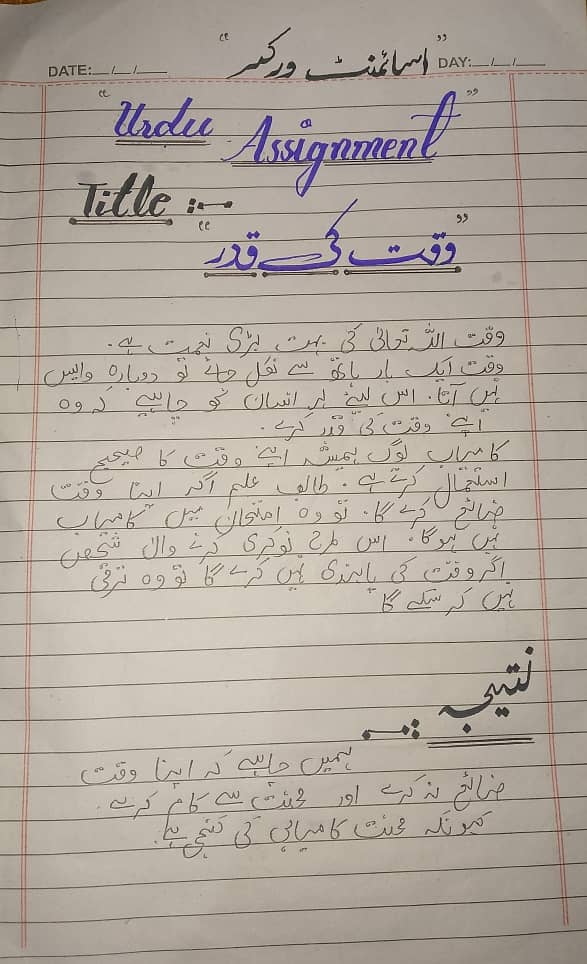 "اسائمنٹ ورکس"
DATE:__/__/__ DAY:__/__/__
"Urdu Assignment"
Title :-
"وقت کی قدر"
وقت اللہ تعالیٰ کی بہت بڑی نعمت ہے۔
وقت ایک بار ہاتھ سے نکل جائے تو دوبارہ واپس
نہیں آتا۔ اس لیے ہر انسان کو چاہیے کہ وہ
اپنے وقت کی قدر کرے۔
کامیاب لوگ ہمیشہ اپنے وقت کا صحیح
استعمال کرتے ہے۔ طالب علم اگر اپنا وقت
ضائع کرے گا۔ تو وہ امتحان میں کامیاب
نہیں ہوگا۔ اس طرح نوکری کرنے والا شخص
اگر وقت کی پابندی نہیں کرے گا تو وہ ترقی
نہیں کر سکے گا
نتیجہ :-
ہمیں چاہیے کہ اپنا وقت
ضائع نہ کرے اور محنت سے کام کرے۔
کیونکہ محنت کامیابی کی کنجی ہے۔